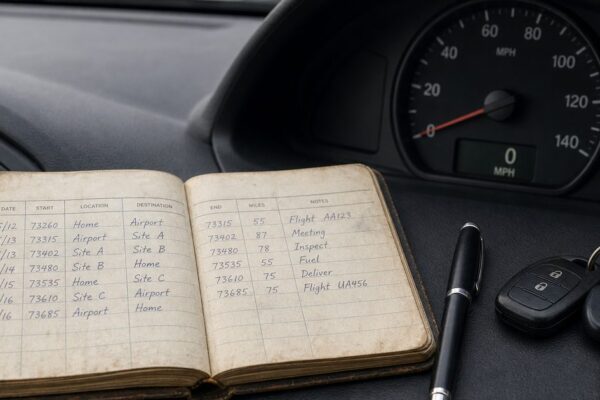 DATE START LOCATION DESTINATION
/12 73260 Home Airport
/13 73315 Airport Site A
/13 73402 Site A Site B
/14 73480 Site B Home
/15 73535 Home Site C
/16 73610 Site C Airport
/16 73685 Airport Home
END MILES NOTES
73315 55 Flight AA123
73402 87 Meeting
73480 78 Inspect
73535 55 Fuel
73610 75 Deliver
73685 75 Flight UA456
0
20
40
60
80
100
120
140
MPH
0
MPH